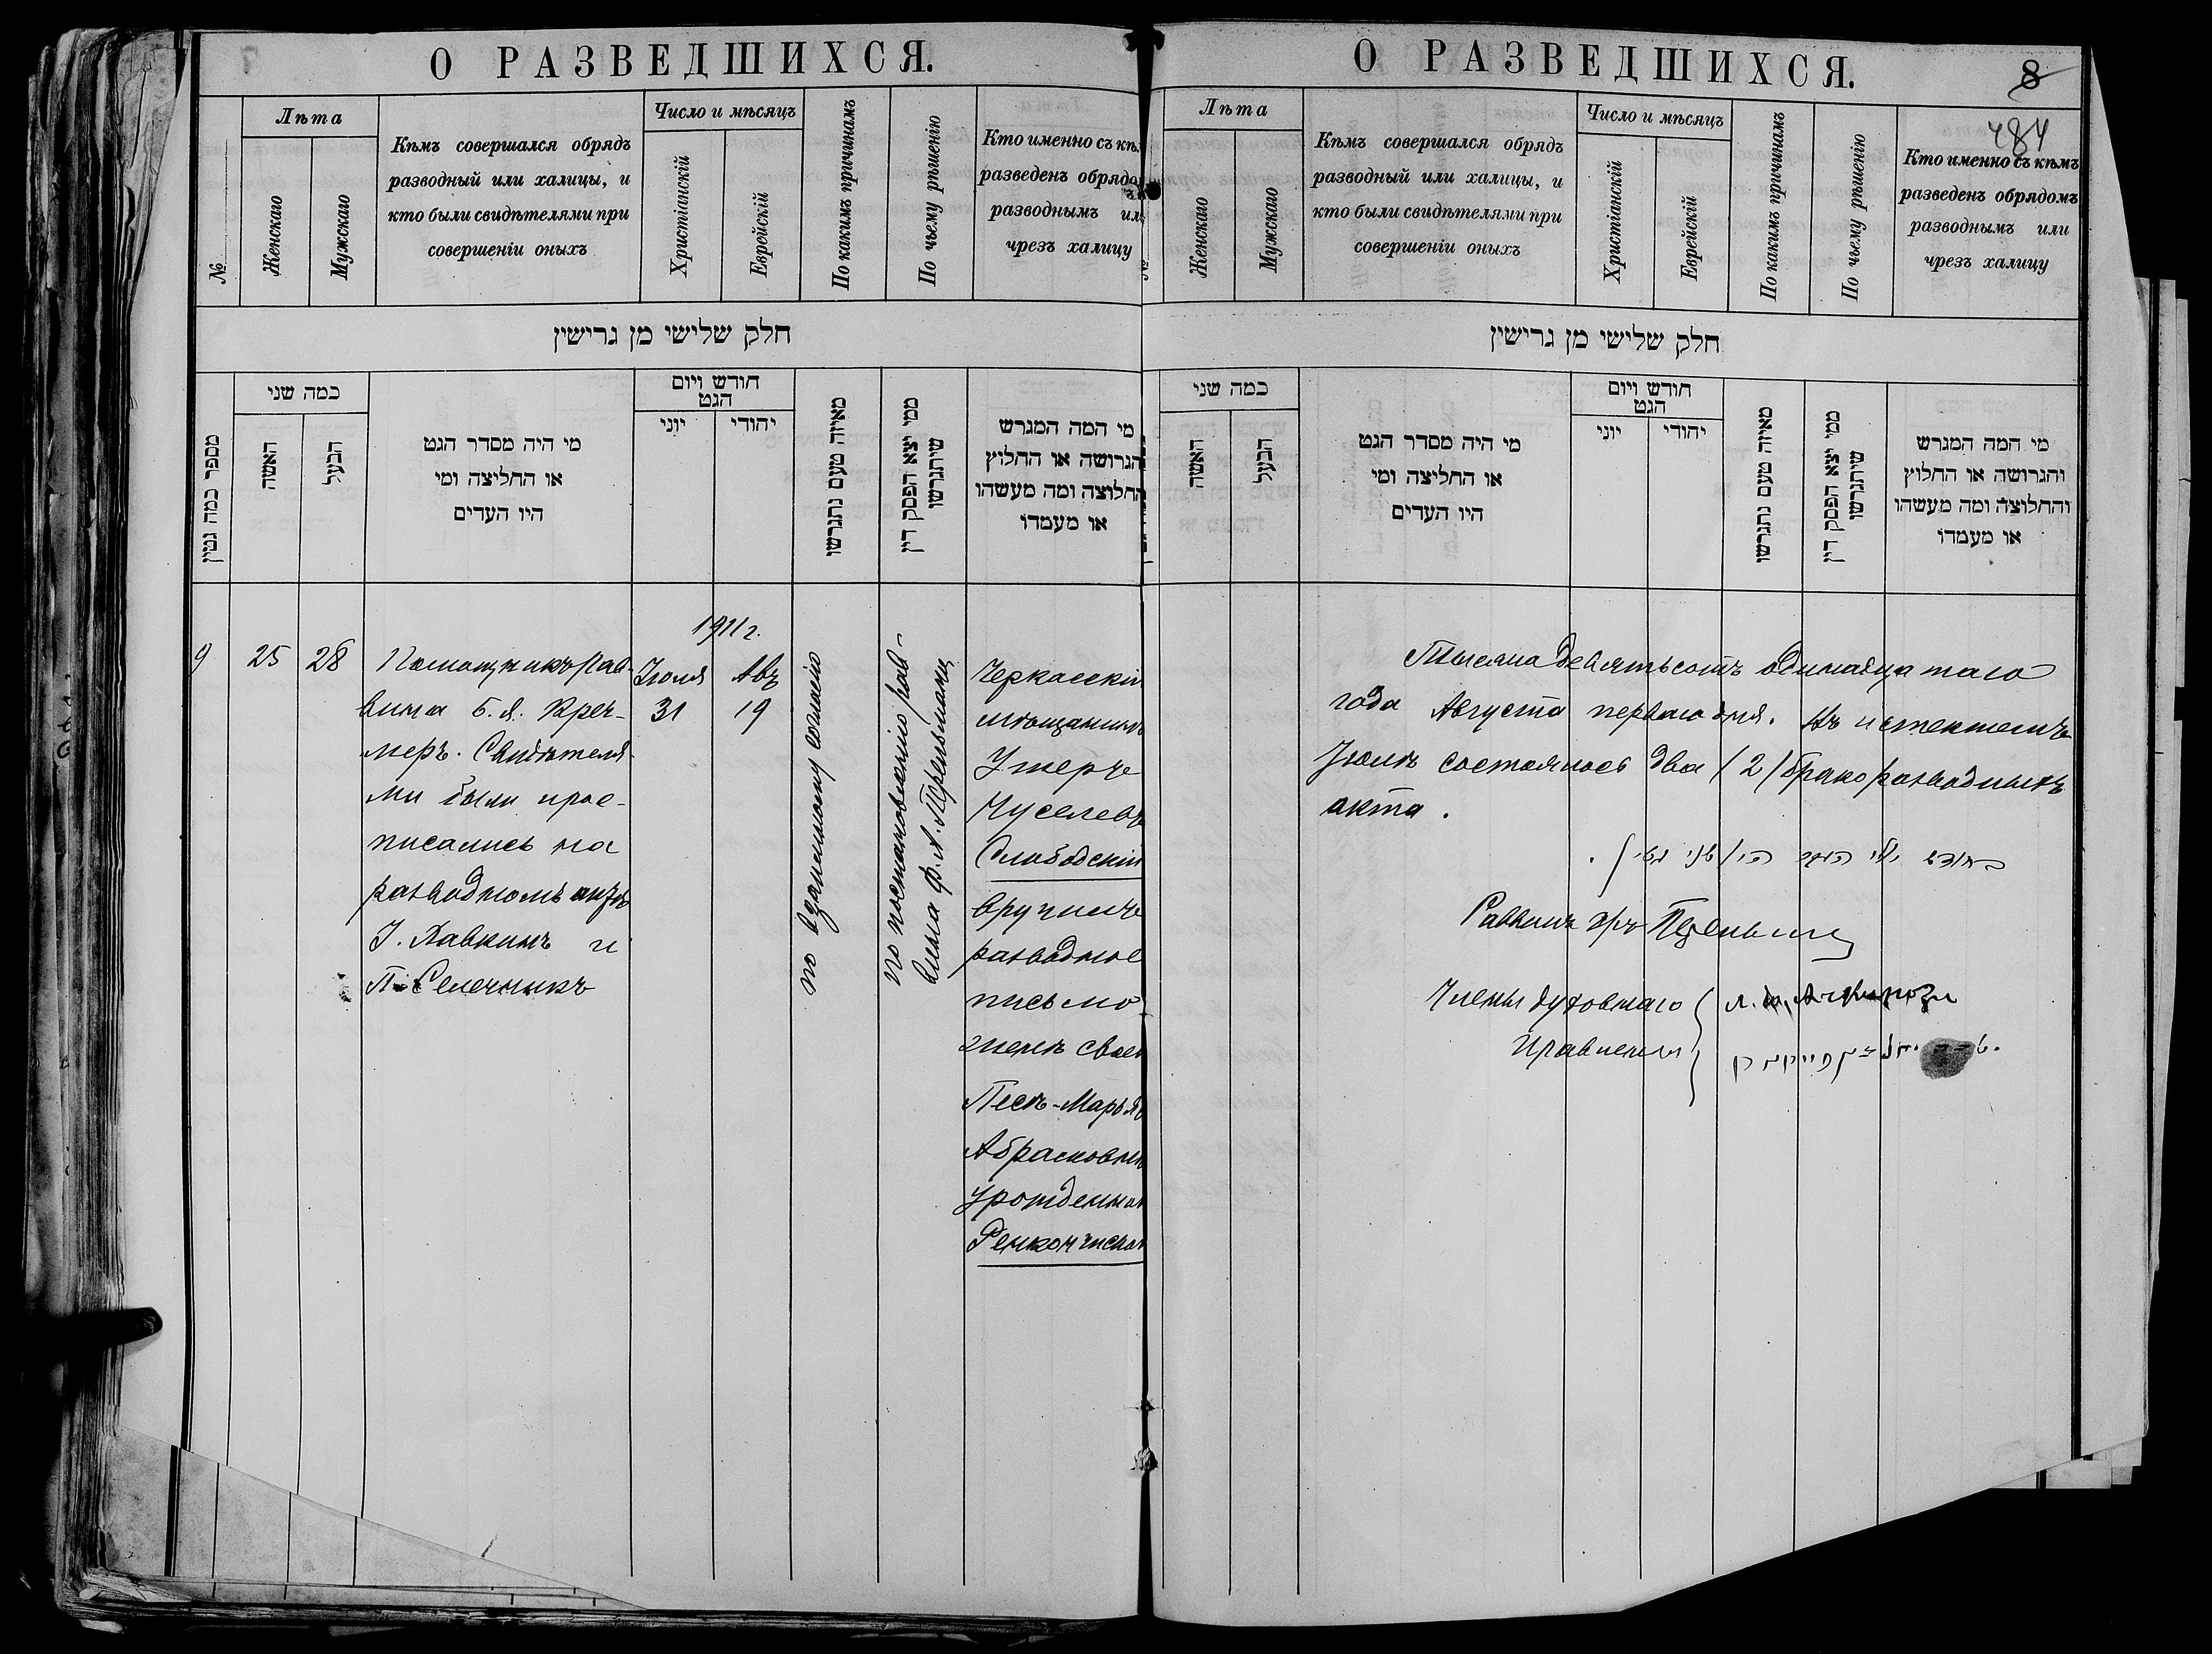 О РАЗВЕДШИХСЯ.
№
Лѣта
Женскаго
Мужскаго
Кѣмъ совершался обрядъ
разводный или халицы, и
кто были свидѣтелями при
совершеніи оныхъ
Число и мѣсяцъ
Христіанскій
Еврейскій
По какимъ причинамъ
По чьему рѣшенію
Кто именно съ
разведенъ
разводнымъ
чрезъ халицу
חלק שלישי מן גרישין
מספר כמה גטין
כמה שני
האשה
הבעל
מי היה מסדר הגט
או החליצה ומי
היו העדים
חודש ויום
הגט
יוני
יהודי
מאיזה טעם נתגרשו
ממי יצא הפסק דין
שיתגרשו
מי המה המגרש
והגרושה או החלוץ
והחלוצה ומה מעשהו
או מעמדו
9
25
28
Помощникъ рав-
вина Б. Я. Креч-
меръ. Свидѣтеля-
ми были и рос-
писались на
разводномъ актѣ
І. Хавкинъ и
П. Селечникъ
1911 г.
Іюля
31
Авъ
19
по взаимному согласію
по постановленію рав-
вина Ф. А.
Черкасскій
мѣщанинъ
Ушеръ
Нуселевъ
Слободскій
вручилъ
разводное
письмо
женѣ своей
Песѣ-Марьѣ
Абрамовнѣ
урожденной
О РАЗВЕДШИХСЯ.
8
484
Лѣта
Женскаго
Мужскаго
Кѣмъ совершался обрядъ
разводный или халицы, и
кто были свидѣтелями при
совершеніи оныхъ
Число и мѣсяцъ
Христіанскій
Еврейскій
По какимъ причинамъ
По чьему рѣшенію
Кто именно съ кѣмъ
разведенъ обрядомъ
разводнымъ или
чрезъ халицу
חלק שלישי מן גרישין
כמה שני
האשה
הבעל
מי היה מסדר הגט
או החליצה ומי
היו העדים
חודש ויום
הגט
יוני
יהודי
מאיזה טעם נתגרשו
ממי יצא הפסק דין
שיתגרשו
מי המה המגרש
והגרושה או החלוץ
והחלוצה ומה מעשהו
או מעמדו
Тысяча девятьсотъ одинадцатаго
года Августа перваго дня. Въ истекшемъ
Іюлѣ состоялось два (2) бракоразводныхъ
акта.
בחודש יולי
שני גטין.
Раввинъ
Члены духовнаго
Правленія